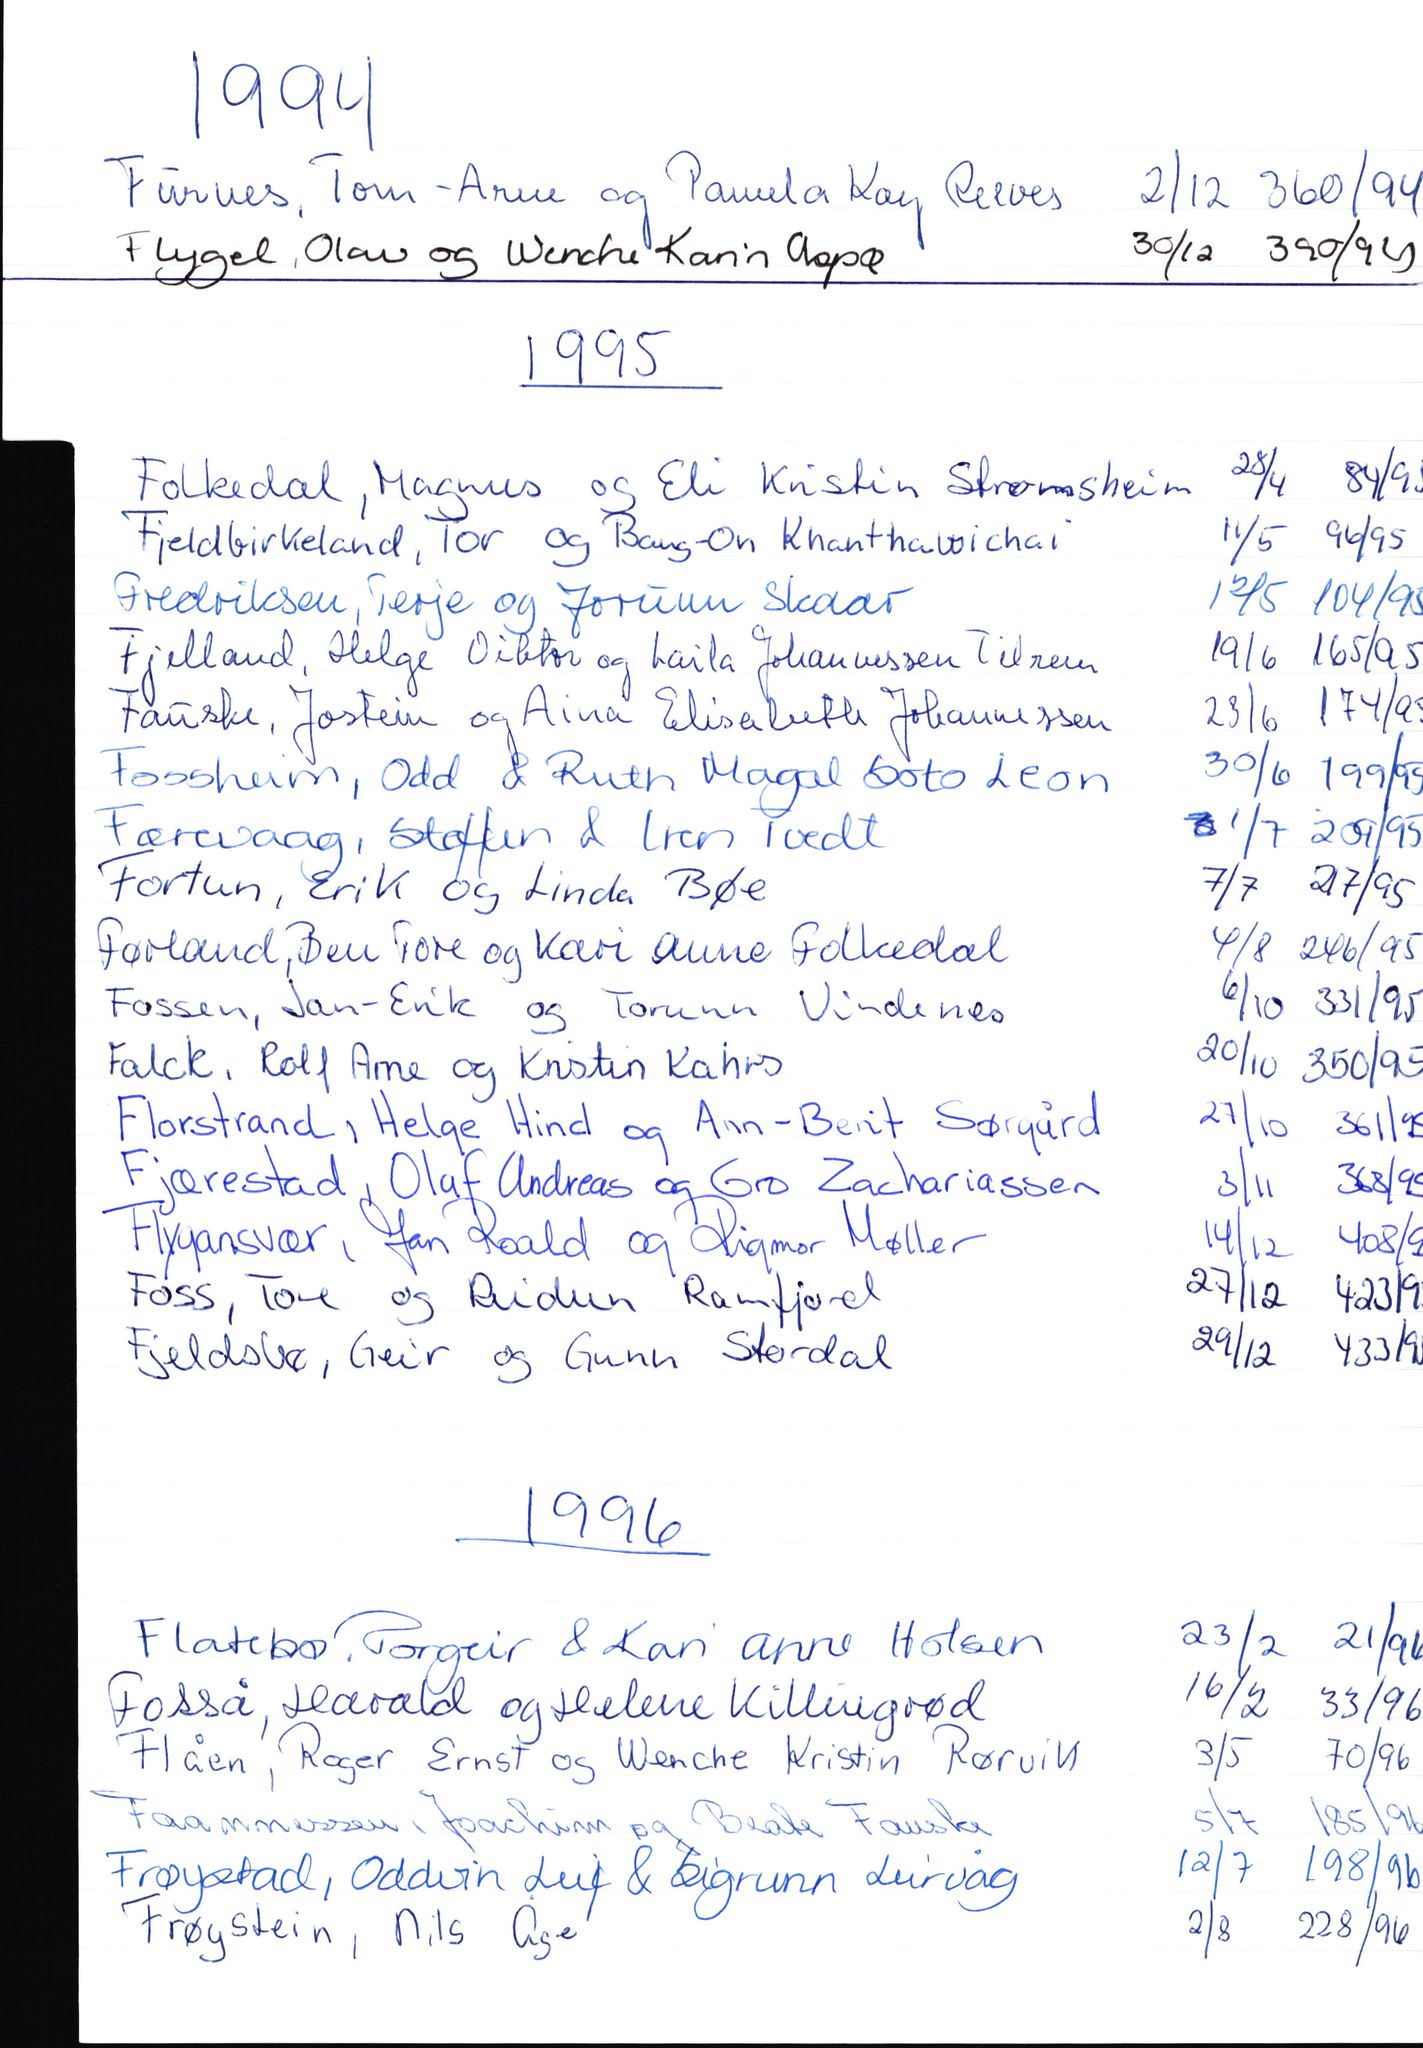 1994
Furnes, Tom-Arne og Pamela Kay Reeves 2/12 360/94
Flygel, Olav og Wenche Karin Aspø 30/12 390/94
1995
Folkedal, Magnus og Eli Kristin Strømsheim 28/4 84/95
Fjeldbirkeland, Tor og Bang-On Khanthawichai 11/5 96/95
Fredriksen, Terje og Jorunn Skaar 12/5 104/95
Fjelland, Helge Viktor og Laila Johannessen Tilrem 19/6 165/95
Fauske, Jostein og Aina Elisabeth Johannessen 23/6 174/95
Fossheim, Odd & Ruth Magal Soto Leon 30/6 199/95
Færevaag, Steffen & Iren Tvedt 1/7 209/95
Fortun, Erik og Linda Bøe 7/7 217/95
Førland, Ben Tore og Kari Anne Folkedal 4/8 246/95
Fossen, Jan-Erik og Torunn Vindenes 6/10 331/95
Falck, Rolf Arne og Kristin Kahrs 20/10 350/95
Florstrand, Helge Hind og Ann-Berit Sørgård 27/10 361/95
Fjærestad, Olaf Andreas og Gro Zachariassen 3/11 368/95
Flygansvær, Jan Roald og Rigmor Møller 14/12 408/9
Foss, Tore og Reidun Ramfjord 27/12 423/9
Fjeldsbø, Geir og Gunn Stordal 29/12 433/9
1996
Flatebø, Torgeir & Kari Anne Holsen 23/2 21/96
Fosså, Harald og Helene Killingrød 16/2 33/96
Flåen, Roger Ernst og Wenche Kristin Rørvik 3/5 70/96
Joachim og Beate Fauske 5/7 185/96
Frøystad, Oddvin Leif & Sigrunn Leirvåg 12/7 198/96
Frøystein, Nils Åge 2/8 228/96